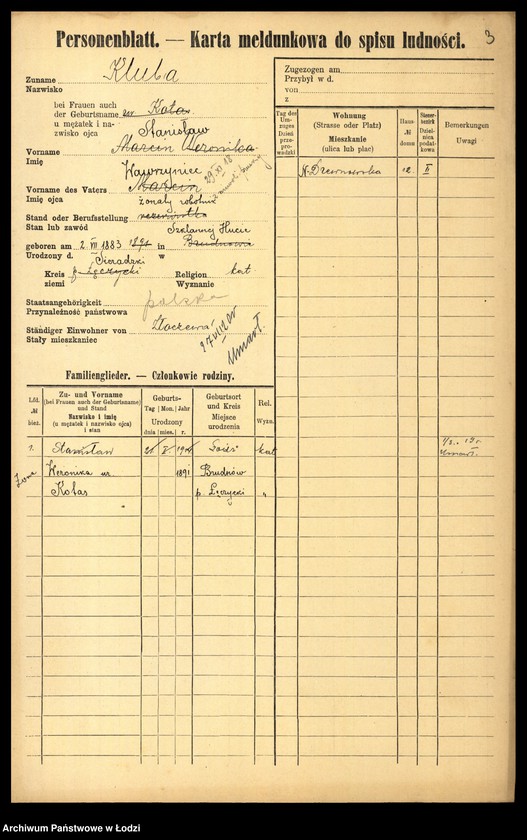 Personenblatt. — Karta meldunkowa do spisu ludności.
3
Zuname Kluba
Nazwisko
bei Frauen auch
der Geburtsname zur Kotas
u mężatek i na-
zwisko ojca Stanisław
Vorname Marcin Weronika
Imię
Wawrzyniec
Vorname des Vaters Marcin
Imię ojca żonaty robotnik
Stand oder Berufsstellung
Stan lub zawód Szklannej Hucie
geboren am 2. VII 1883 1891 in Brudnowie
Urodzony d. w
Sieradzki
Kreis p. Łęczycki Religion kat
ziemi Wyznanie
Staatsangehörigkeit polska
Przynależność państwowa
Ständiger Einwohner von Złoczewa
Stały mieszkaniec
Umarł.
Zugezogen am
Przybył w d.
von
z
Tag der Um-
zuges
Dzień
prze-
pro-
wadzki
Wohnung
(Strasse oder Platz)
Mieszkanie
(ulica lub plac)
Haus-
№
domu
Steuer-
bezirk
Dziel-
nica
podat-
kowa
Bemerkungen
Uwagi
N-Drewnowska 12 II
Familienglieder. — Członkowie rodziny.
Lfd.
№
bież.
Zu- und Vorname
(bei Frauen auch der Geburtsname)
und Stand
Nazwisko i imię
(u mężatek i nazwisko ojca)
i stan
Geburts-
Tag Mon. Jahr
Urodzony
dnia mies. r.
Geburtsort
und Kreis
Miejsce
urodzenia
Rel.
Wyzn.
1. Stanisław 21 X kat
umarł.
Żona Weronika ur. 1891 Brudnów
Kotas p. Łęczycki "
Archiwum Państwowe w Łodzi